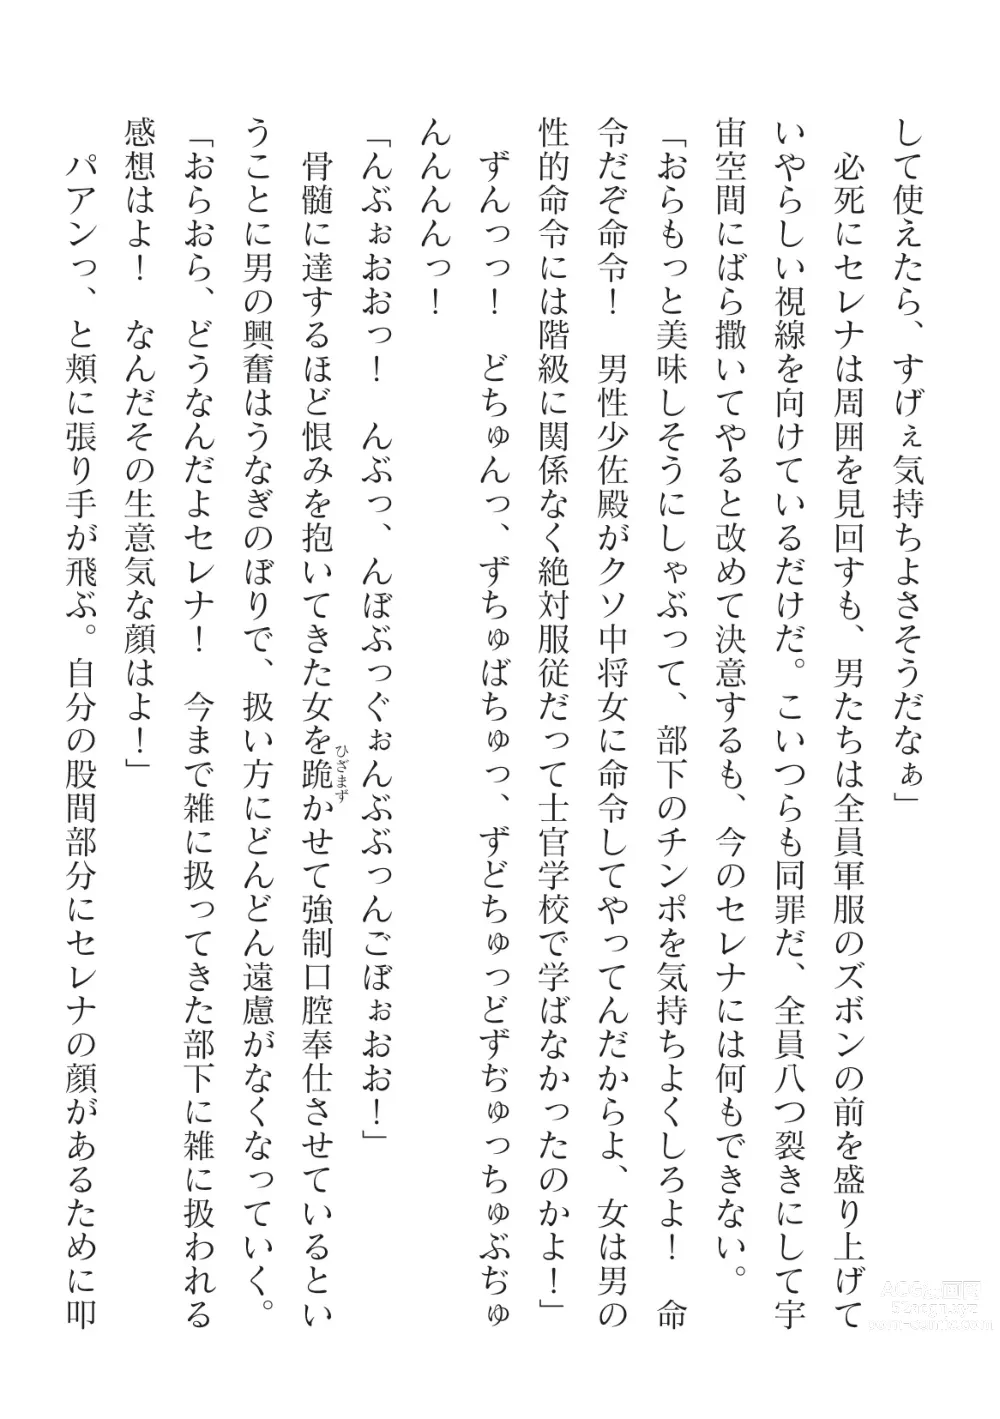 して使えたら、すげぇ気持ちよさそうだなぁ」
必死にセレナは周囲を見回すも、男たちは全員軍服のズボンの前を盛り上げて
いやらしい視線を向けているだけだ。こいつらも同罪だ、全員八つ裂きにして宇
宙空間にばら撒いてやると改めて決意するも、今のセレナには何もできない。
「おらもっと美味しそうにしゃぶって、部下のチンポを気持ちよくしろよ！　命
令だぞ命令！　男性少佐殿がクソ中将女に命令してやってんだからよ、女は男の
性的命令には階級に関係なく絶対服従だって士官学校で学ばなかったのかよ！」
ずんっっ！　どちゅんっ、ずちゅばちゅっ、ずどちゅっどずぢゅっちゅぶぢゅ
んんんんっ！
「んぶぉおおっ！　んぶっ、んぼぶっぐぉんぶぶっんごぼぉおお！」
ひざまず
骨髄に達するほど恨みを抱いてきた女を跪かせて強制口腔奉仕させているとい
うことに男の興奮はうなぎのぼりで、扱い方にどんどん遠慮がなくなっていく。
「おらおら、どうなんだよセレナ！　今まで雑に扱ってきた部下に雑に扱われる
感想はよ！　なんだその生意気な顔はよ！」
パアンっ、と頬に張り手が飛ぶ。自分の股間部分にセレナの顔があるために叩